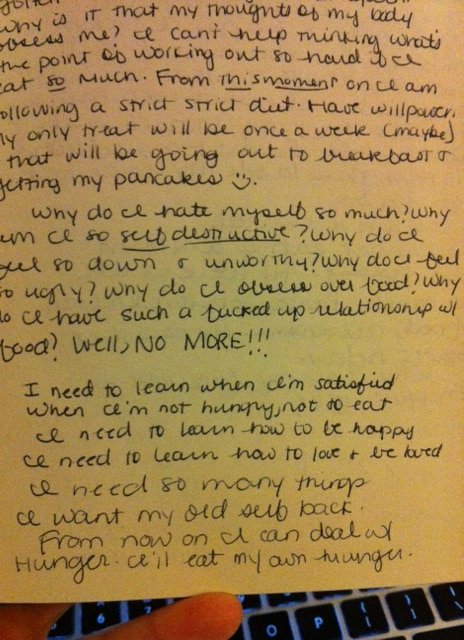 Why is it that my thoughts of my body
obsess me? I can't help thinking what's
the point of working out so hard if I
eat so much. From this moment on I am
following a strict strict diet. Have willpower.
My only treat will be once a week (maybe)
that will be going out to breakfast &
getting my pancakes :).
Why do I hate myself so much? Why
am I so self destructive? Why do I
feel so down & unworthy? Why do I feel
so ugly? Why do I obsess over food? Why
do I have such a fucked up relationship w/
food? Well, NO MORE!!!
I need to learn when I'm satisfied
when I'm not hungry, not to eat
I need to learn how to be happy
I need to learn how to love & be loved
I need so many things
I want my old self back.
From now on I can deal w/
Hunger. I'll eat my own hunger.
6 7 O P { [ } ]